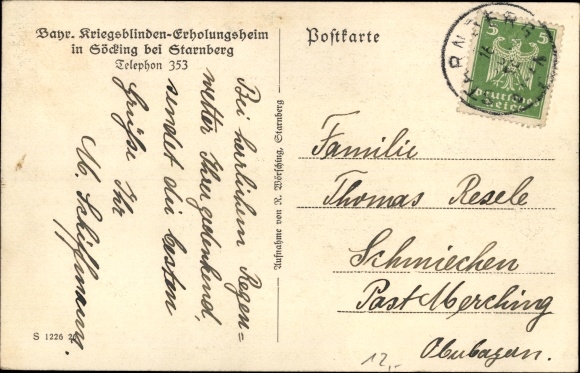 Bayr. Kriegsblinden-Erholungsheim
in Söcking bei Starnberg
Telephon 353
Postkarte
Bei herrlichem Regen=
wetter Ihrer gedenkend,
sendet die besten
Grüße Ihr
M. Schiffmann.
Aufnahme von R. Wörsching, Starnberg
5 5
Deutsches
Reich
Familie
Thomas Resele
Schmiechen
Post Merching
Oberbayern.
S 1226
12,-